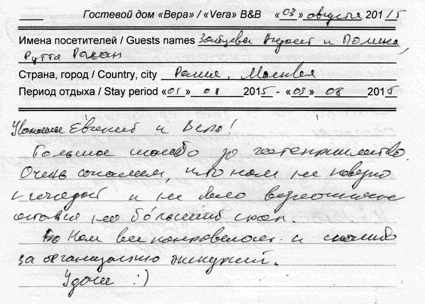 Гостевой дом «Вера» / «Vera» B&B «03» августа 2015
Имена посетителей / Guests names Зайцевы Андрей и Полина,
Рутта Раван
Страна, город / Country, city Россия, Москва
Период отдыха / Stay period «01» 08 2015 - «03» 08 2015
Уважаемые Евгений и Вера!
Большое спасибо за гостеприимство.
Очень сожалеем, что нам не повезло
с погодой и не было возможности
остаться на бо́льший срок.
Нам все понравилось и спасибо
за организацию экскурсий.
Удачи :)